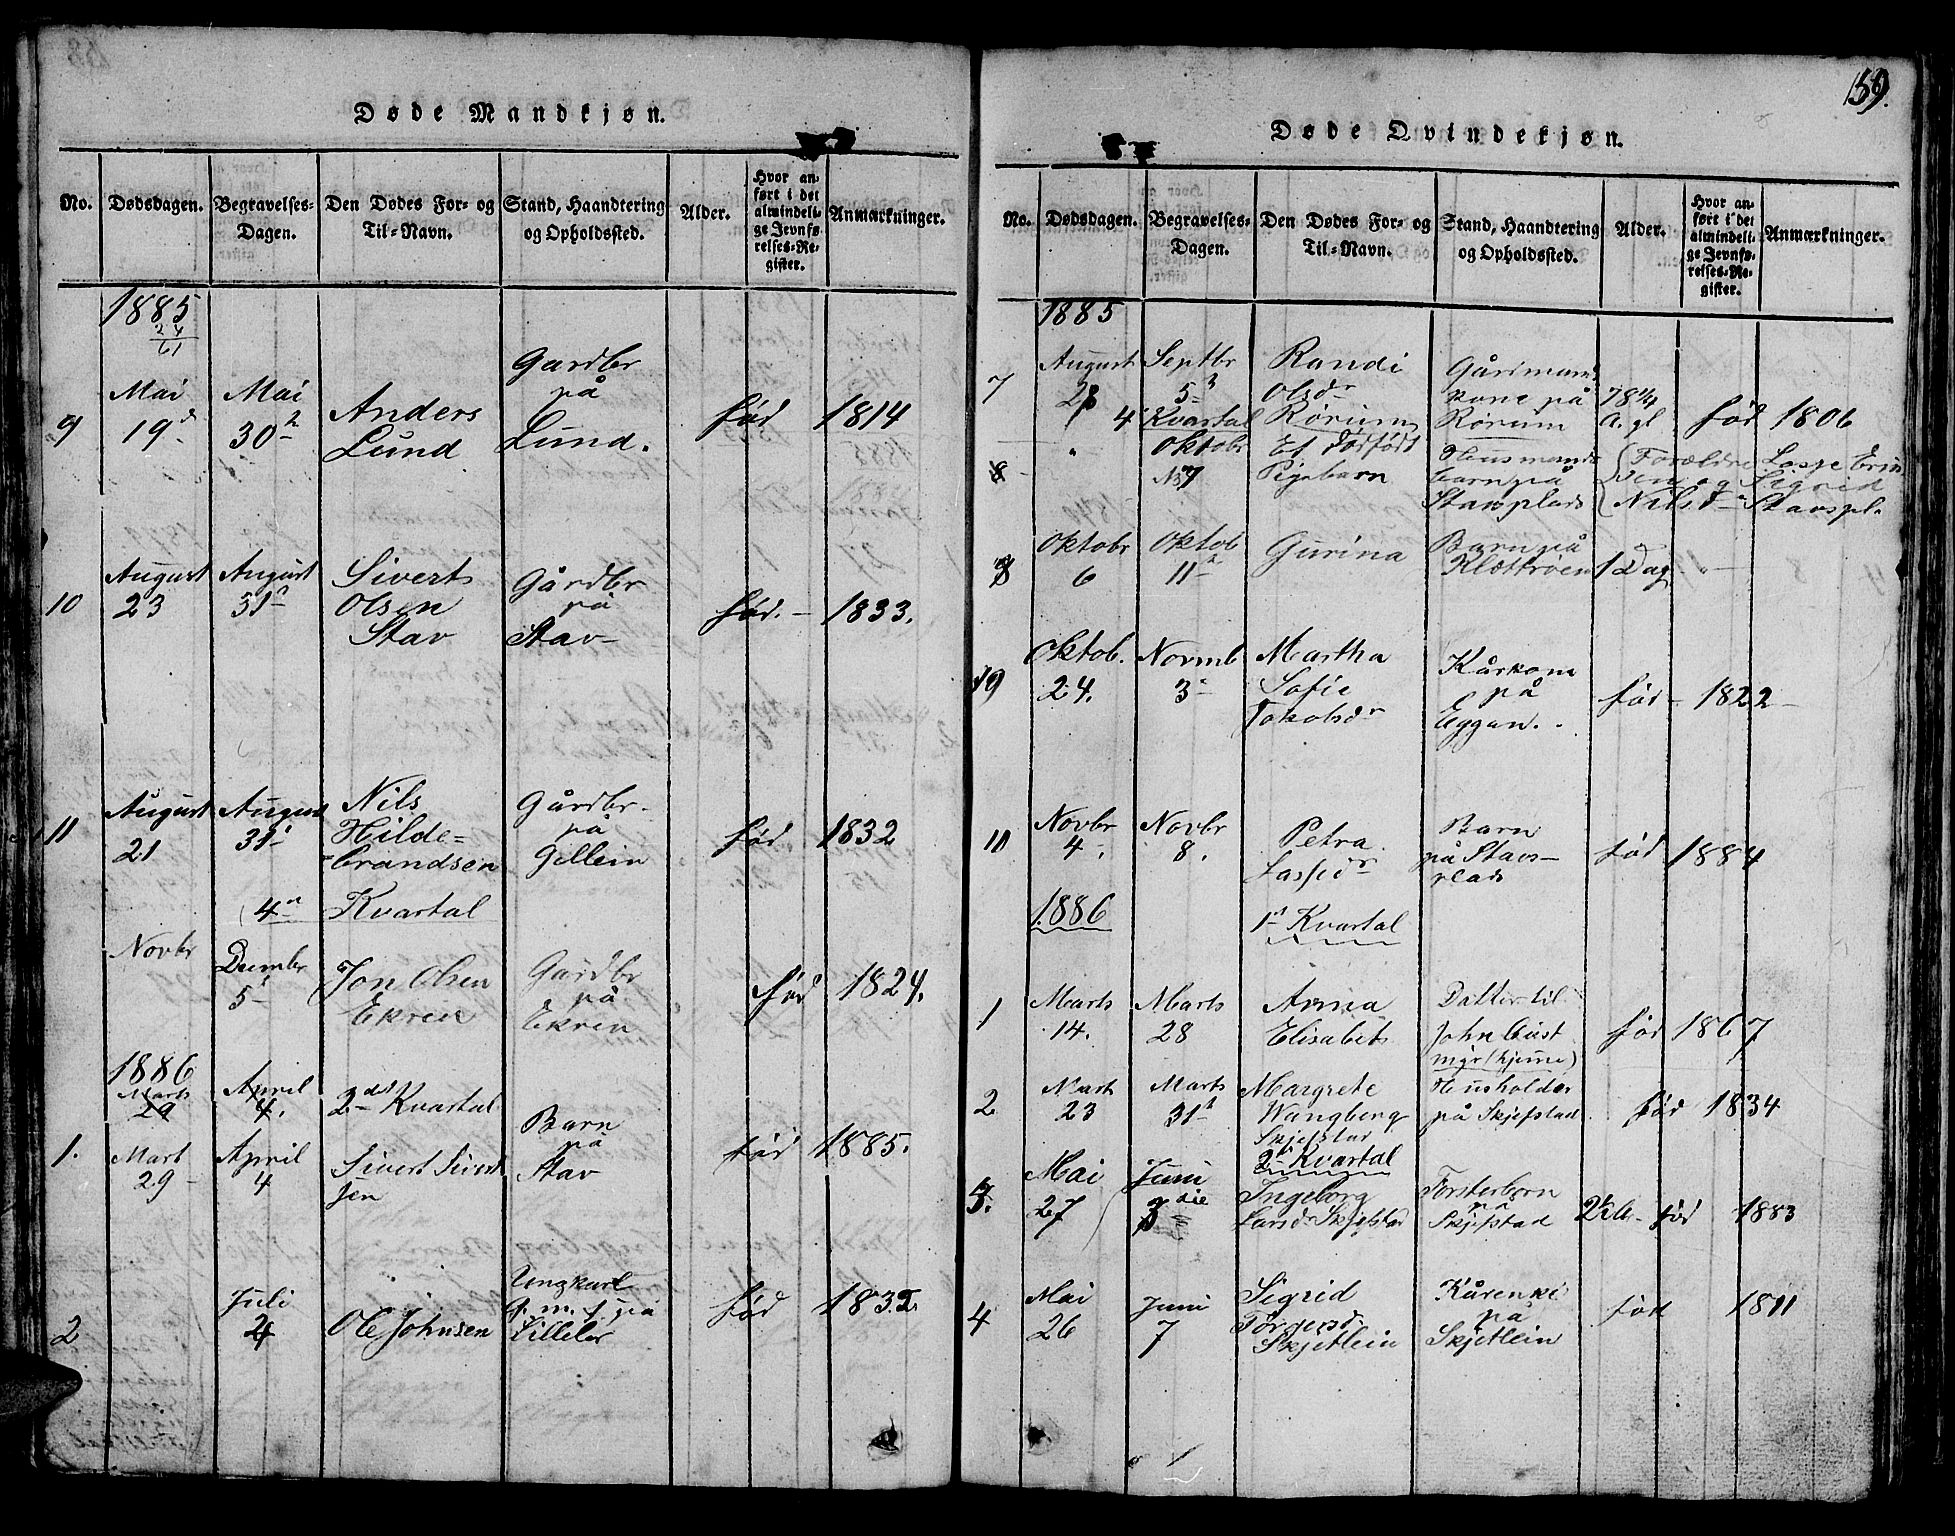 Døde Mandkjøn.
No.
Dødsdagen.
Begravelses-
Dagen.
Den Dødes For- og
Til-Navn.
Stand, Haandtering
og Opholdssted.
Alder.
Hvor an-
ført i det
almindeli-
ge Jevnfø-
relses-Re-
gister.
Anmærkninger.
1885
24
61
9
Mai
19d
Mai
30
Anders
Lund
Gardbr
på
Lund.
fød
1814
10
August
23
August
31
Sivert
Olsen
Stav
Gårdbr
på
Stav
fød.
1833.
11
August
21
August
31
Nils
Hilde=
brandsen
Gårdbr.
på
Gellein
fød
1832
4
Kvartal
Novbr
5
Jon Olsen
Ekren
Gardbr
på
Ekren
fød
1824.
1886
Marts
29
April
4.
2det Kvartal
1.
Mart
29
April
4
Sivert Sivert
sen
Barn
på
Stav
fød
1885.
2
Juli
Ole Johnsen
Ungkarl
på
fød
159.
Døde Qvindekjøn.
No.
Dødsdagen.
Begravelses-
Dagen.
Den Dødes For- og
Til-Navn.
Stand, Haandtering
og Opholdssted.
Alder.
Hvor an-
ført i det
almindeli-
ge Jevnfø-
relses-Re-
gister.
Anmærkninger.
1885
7
August
Septbr
5
Randi
Olsdr
Rørum
Gårdmands
kone på
Rørum
78 1/4
A. gl
fød
1806
4 Kvartal
8
Oktobr
No 7
Et dødfødt
Pigebarn
Husmands
barn på
Stavsplads
Forældre Lasse Erik
sen og Sigrid
Nilsd Stavspl.
Oktobr
6
Oktob
11
Gurina
Barn på
1 Dag
9
Oktob.
24.
Novmb
3
Martha
Sofie
Jakobsdr
Kårkone
på
Eggan.
fød
1822
Novbr
4.
Novbr
8.
Petra
Lassedr
Barn
på Stavs-
plads
fød
1884
1886
1st Kvartal
1
Marts
14.
Marts
28
Anna
Elisabet
Datter til
John
fød
1867
2
Marts
23
Marts
31
Margrete
Wangberg
Skjefstad
Husholder
på Skjefstad
fød
1834
2 Kvartal
3.
Mai
27
Juni
Ingeborg
Larsdr Skjefstad
Fosterbørn
på
Skjefstad
fød
1883
4
Mai
26
Juni
7
Sigrid
Torgersdr
Skjetlein
Kårenke
på
Skjetlein
fød
1811